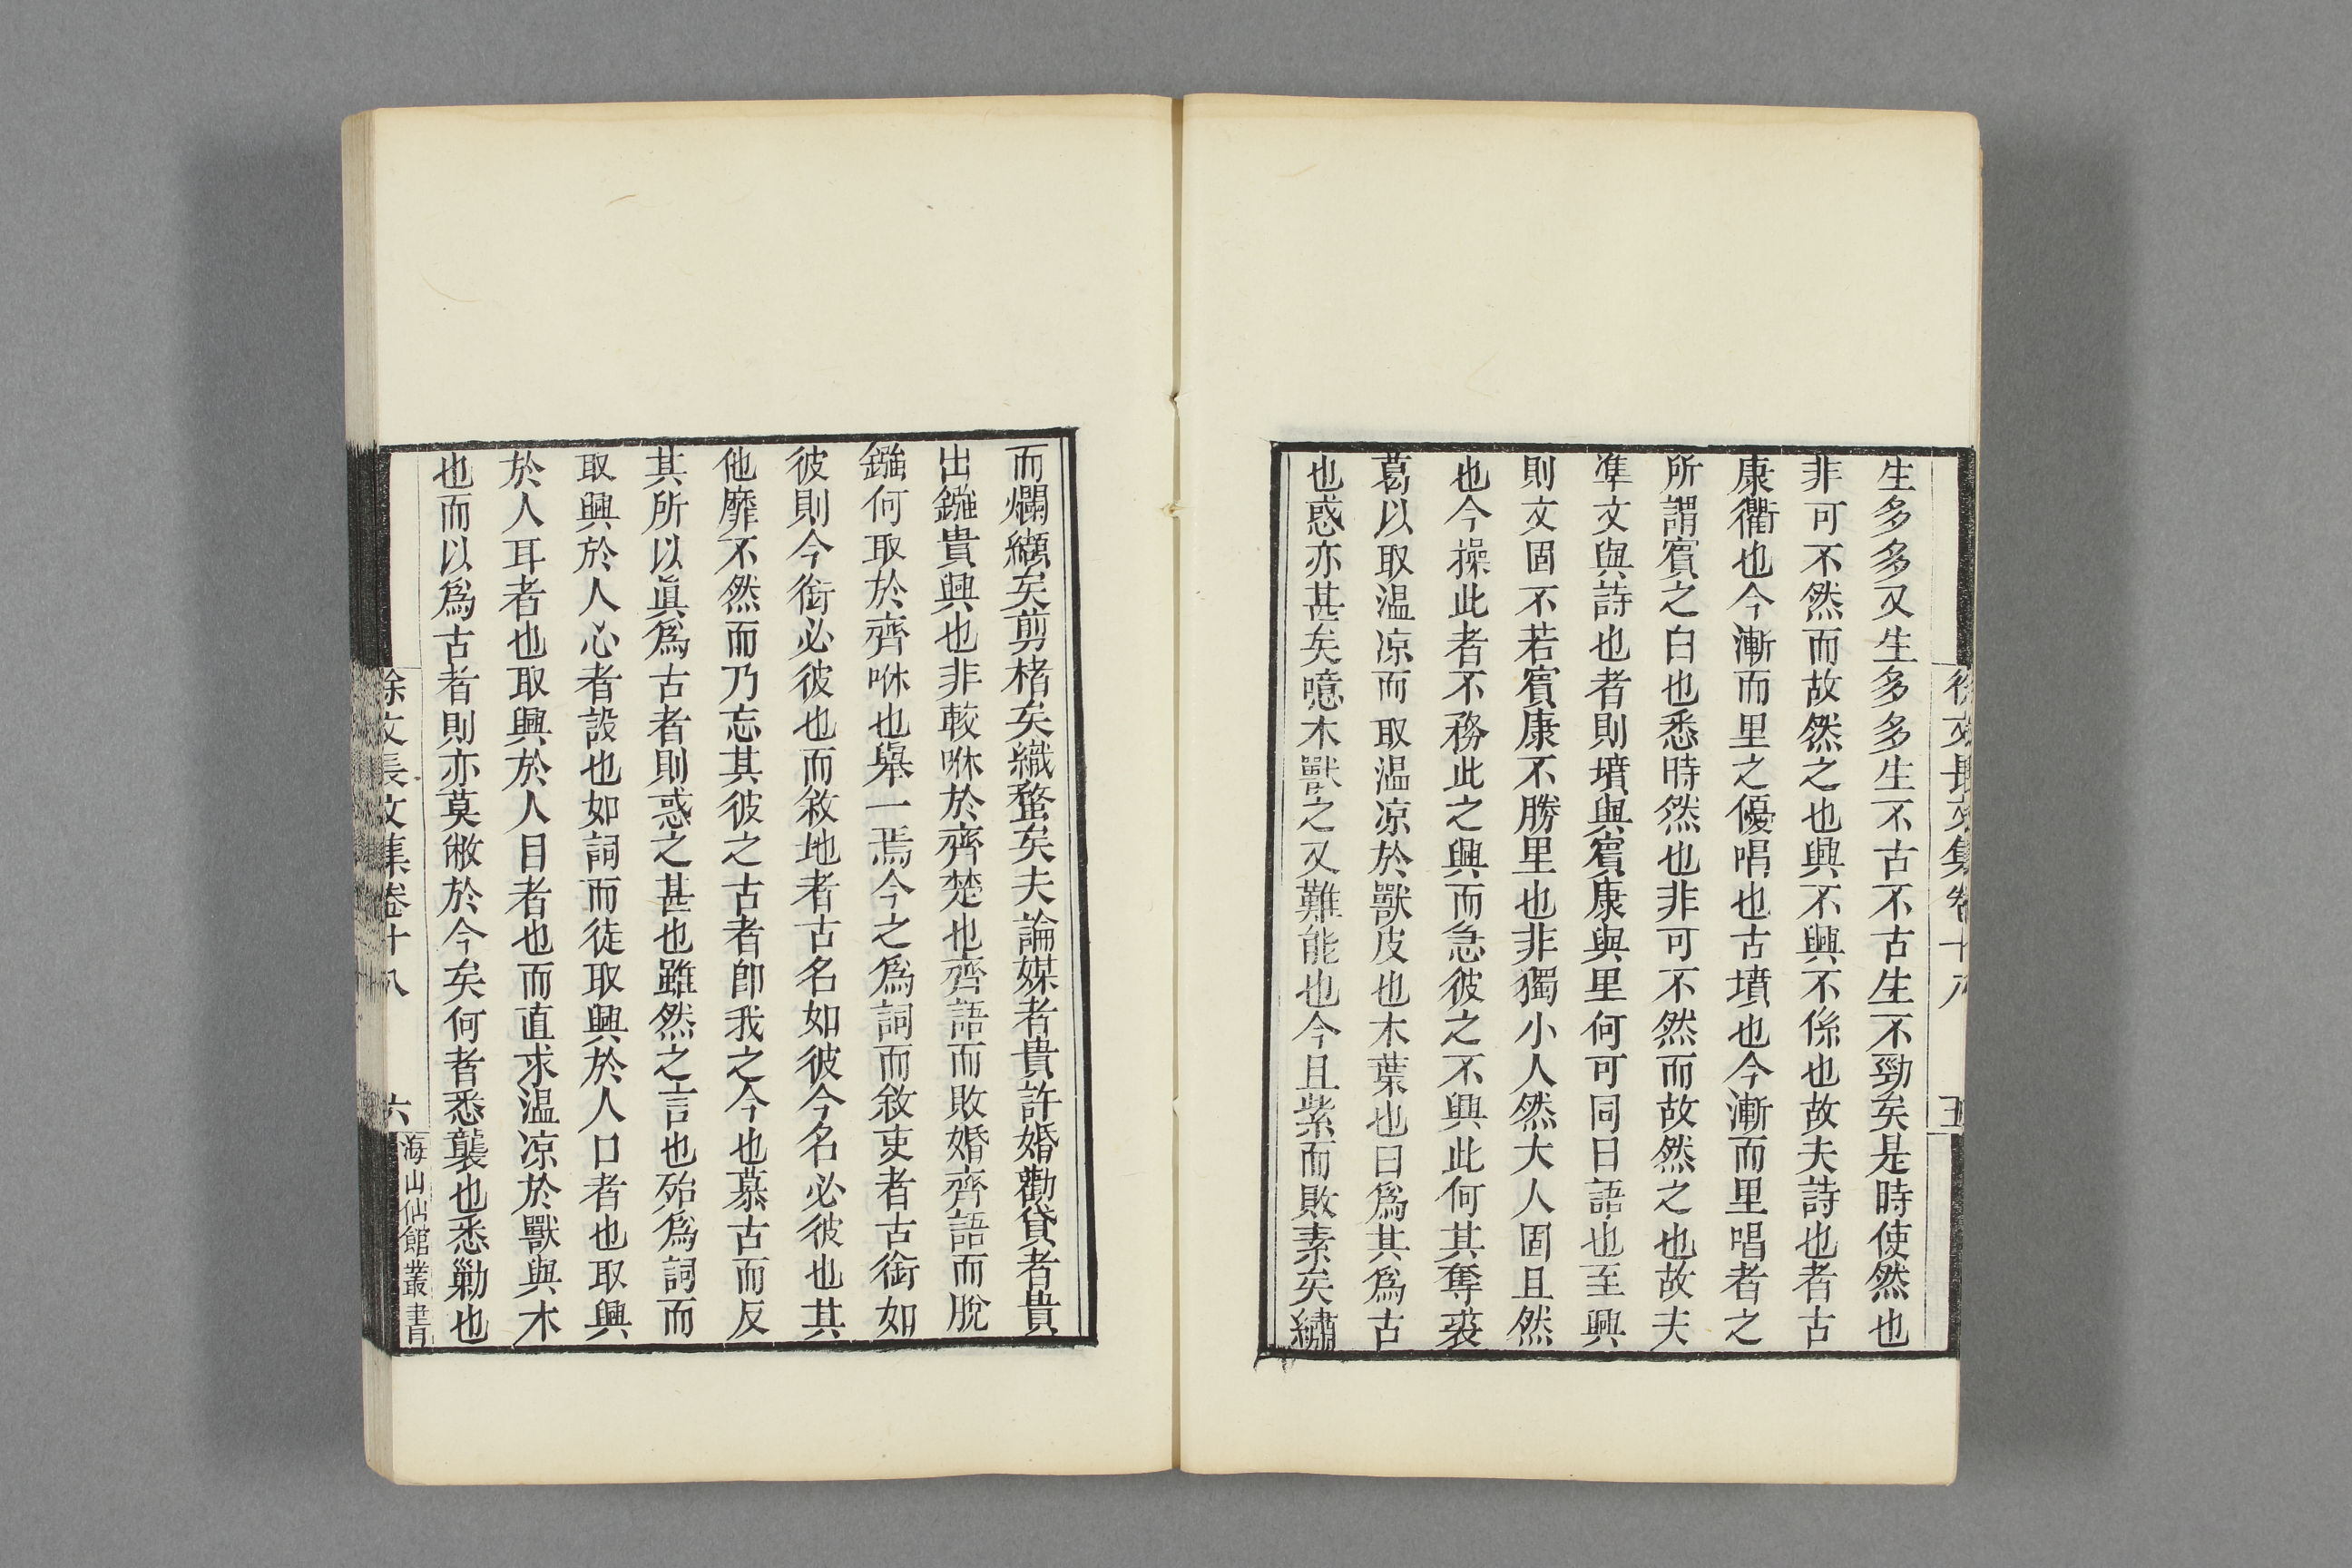 徐文長文集卷十八 五
生多多又生多多生不古不古生不勁矣是時使然也
非可不然而故然之也興不興不係也故夫詩也者古
康衢也今漸而里之優唱也古墳也今漸而里唱者之
所謂賓之白也悉時然也非可不然而故然之也故夫
準文與詩也者則墳與賓康與里何可同日語也至興
則文固不若賓康不勝里也非獨小人然大人固且然
也今操此者不務此之興而急彼之不興此何其奪裘
葛以取温凉而取温凉於獸皮也木葉也曰爲其爲古
也惑亦甚矣噫木獸之又難能也今且紫而敗素矣繡
而爛纈矣剪楮矣織蝥矣夫論媒者貴許婚勸貸者貴
出鏹貴興也非較咻於齊楚也齊語而敗婚齊語而脫
鏹何取於齊咻也舉一焉今之爲詞而敘吏者古銜如
彼則今銜必彼也而敘地者古名如彼今名必彼也其
他靡不然而乃忘其彼之古者卽我之今也慕古而反
其所以眞爲古者則惑之甚也雖然之言也殆爲詞而
取興於人心者設也如詞而徒取興於人口者也取興
於人耳者也取興於人目者也而直求温凉於獸與木
也而以爲古者則亦莫敝於今矣何者悉襲也悉勦也
徐文長文集卷十八 六 海山仙館叢書